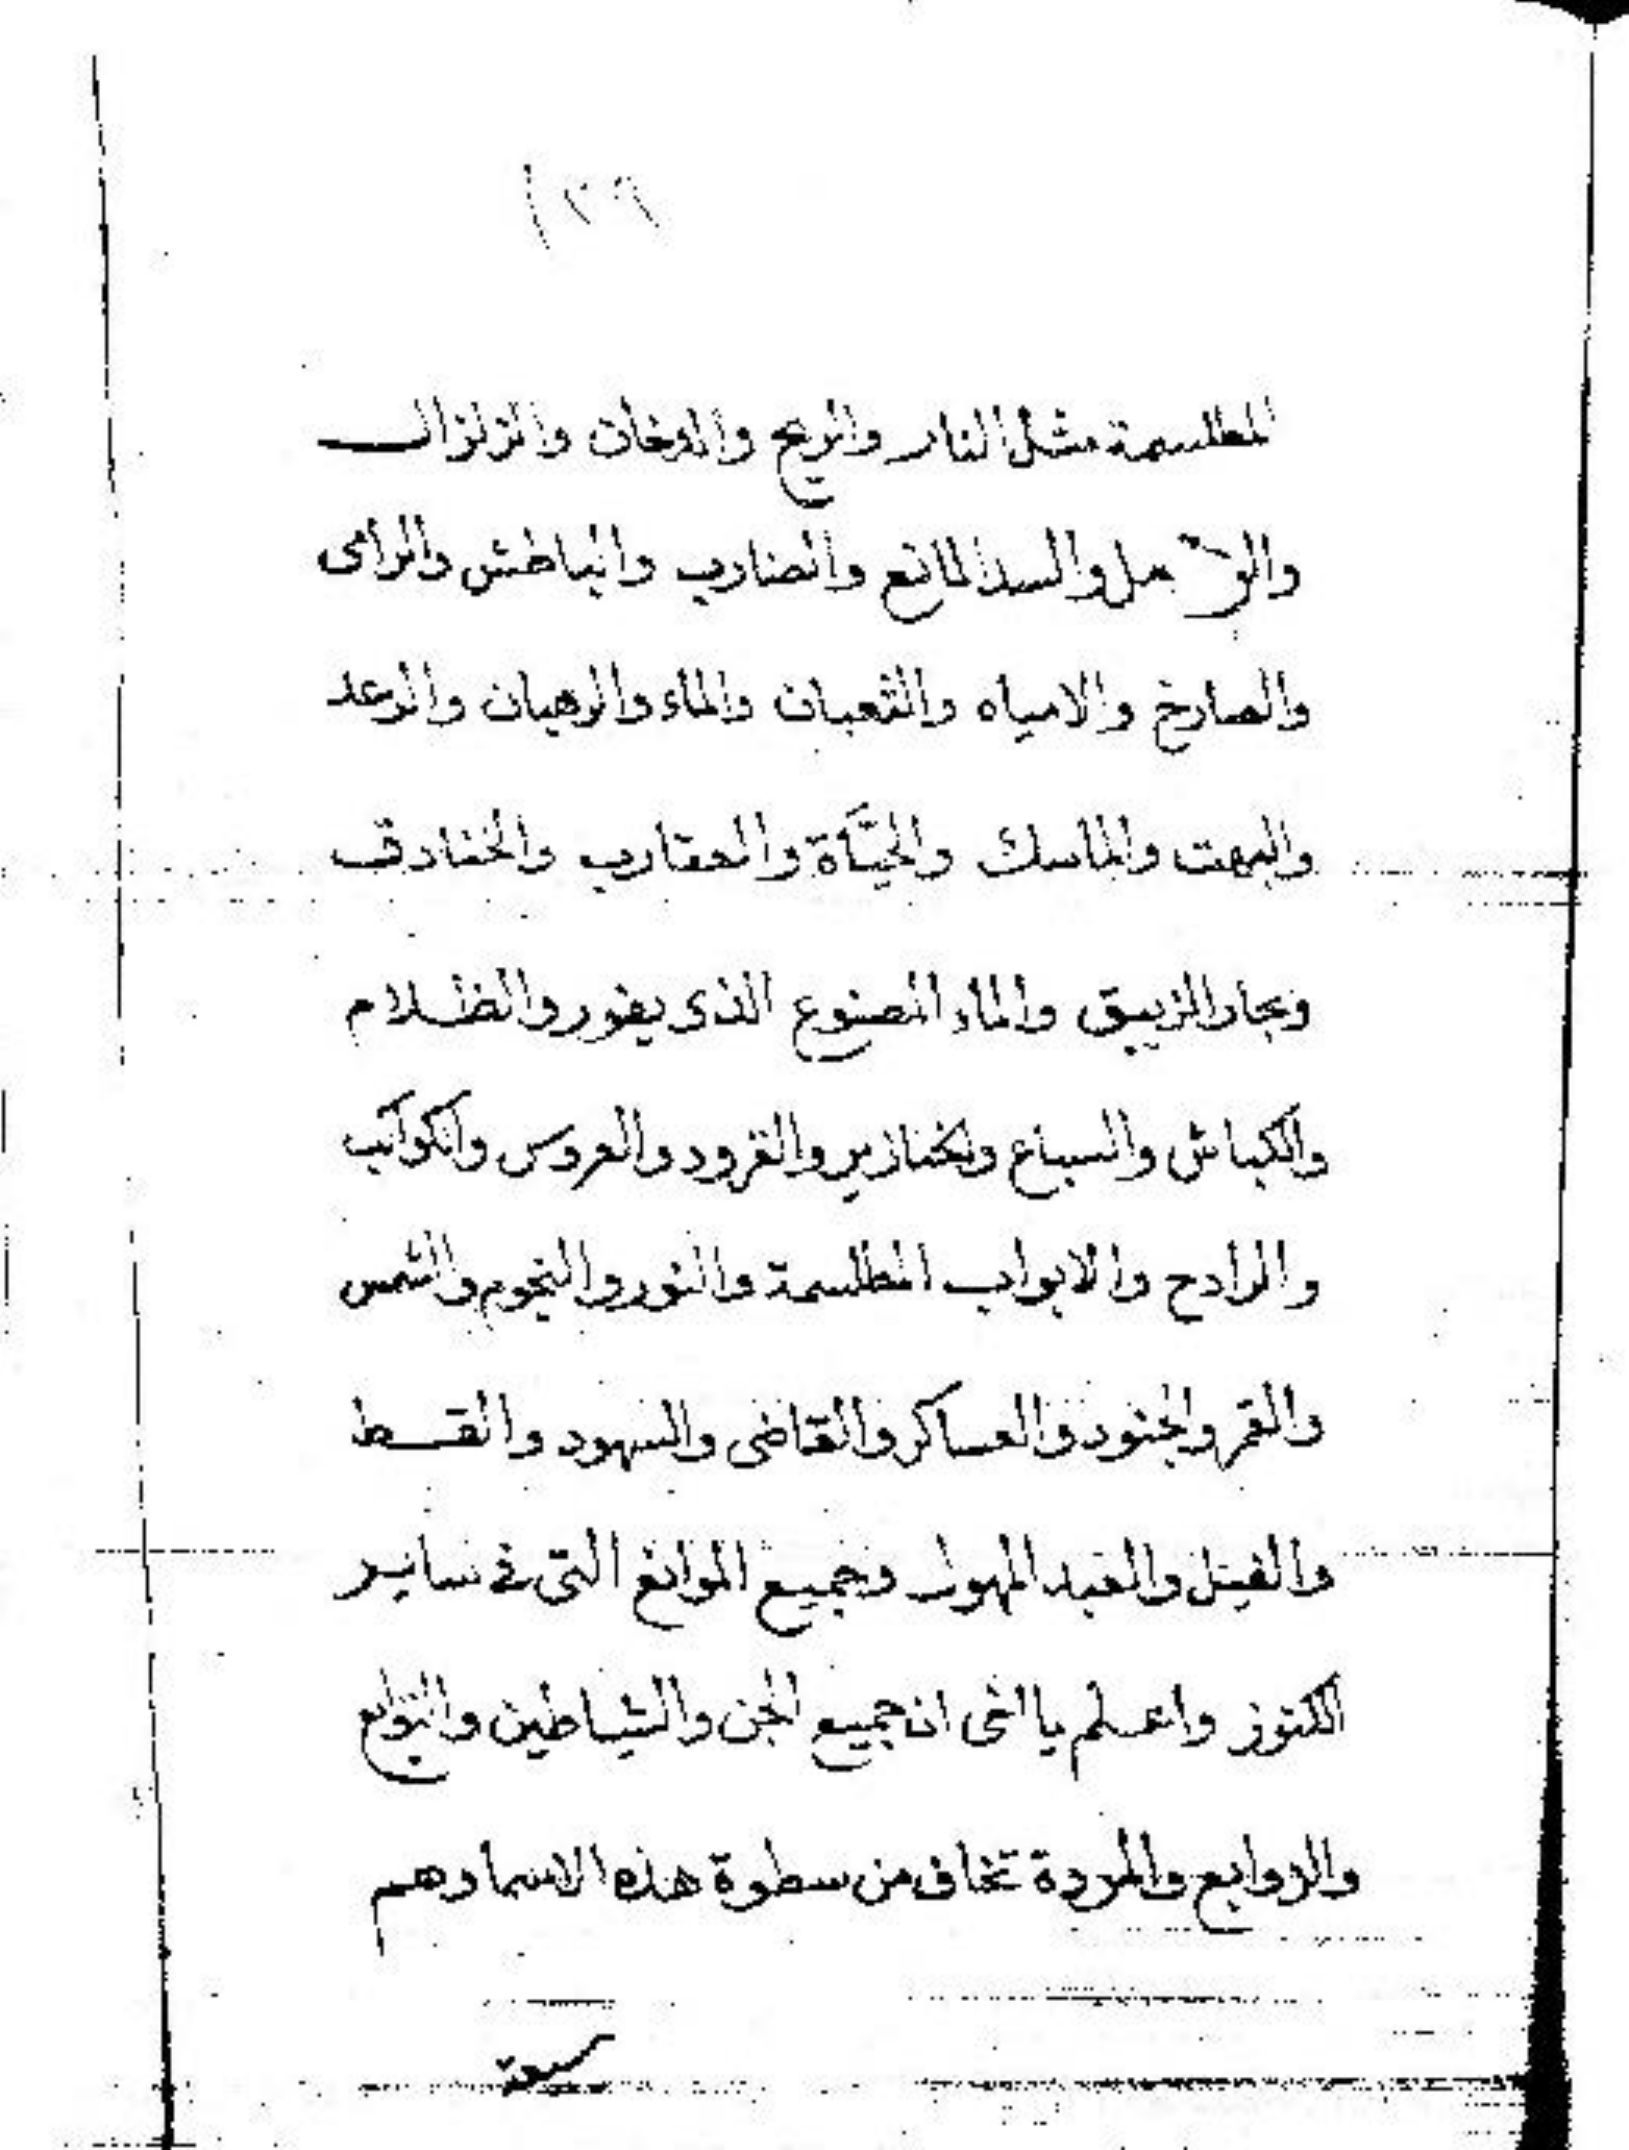 ١٣٩
المطلسمة مثل النار والريح والدخان والزلزال
والسد المانع والضارب والباطش والرامى
والصارخ والامياه والثعبان والماء والرهبان والرعد
والبهت والماسك والحيّاة والعقارب والخنادق
وبحار الزيبق والماء المصنوع الذى يفور والظلام
والكباش والسباع والخنازير والقرود والعروس والكواكب
والرادح والابواب المطلسمة والنور والنجوم والشمس
والقمر والجنود والعساكر والقاضى والشهود والقسط
والفيل والعبد المهول وجميع الموانع التى فى ساير
الكنوز واعلم يا اخى ان جميع الجن والشياطين والتوابع
والزوابع والمردة تخاف من سطوة هذه الاسما وهم
سبعة